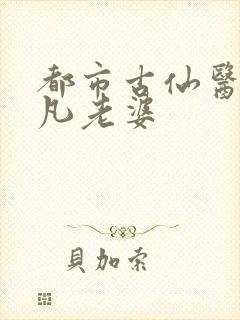 都市古仙醫
凡老婆
貝加索